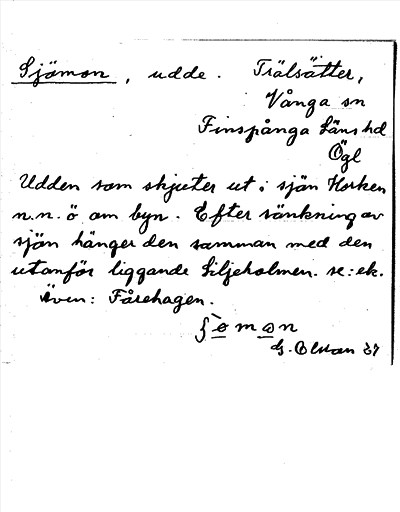 Sjömon, udde. Trälsätter,
Vånga sn
Finspånga läns hd
Ögl
Udden som skjuter ut i sjön Horken
n.n.ö om byn. Efter sänkning av
sjön hänger den samman med den
utanför liggande Liljeholmen. se: ek.
Även: Fårehagen.
G. Olsson 37